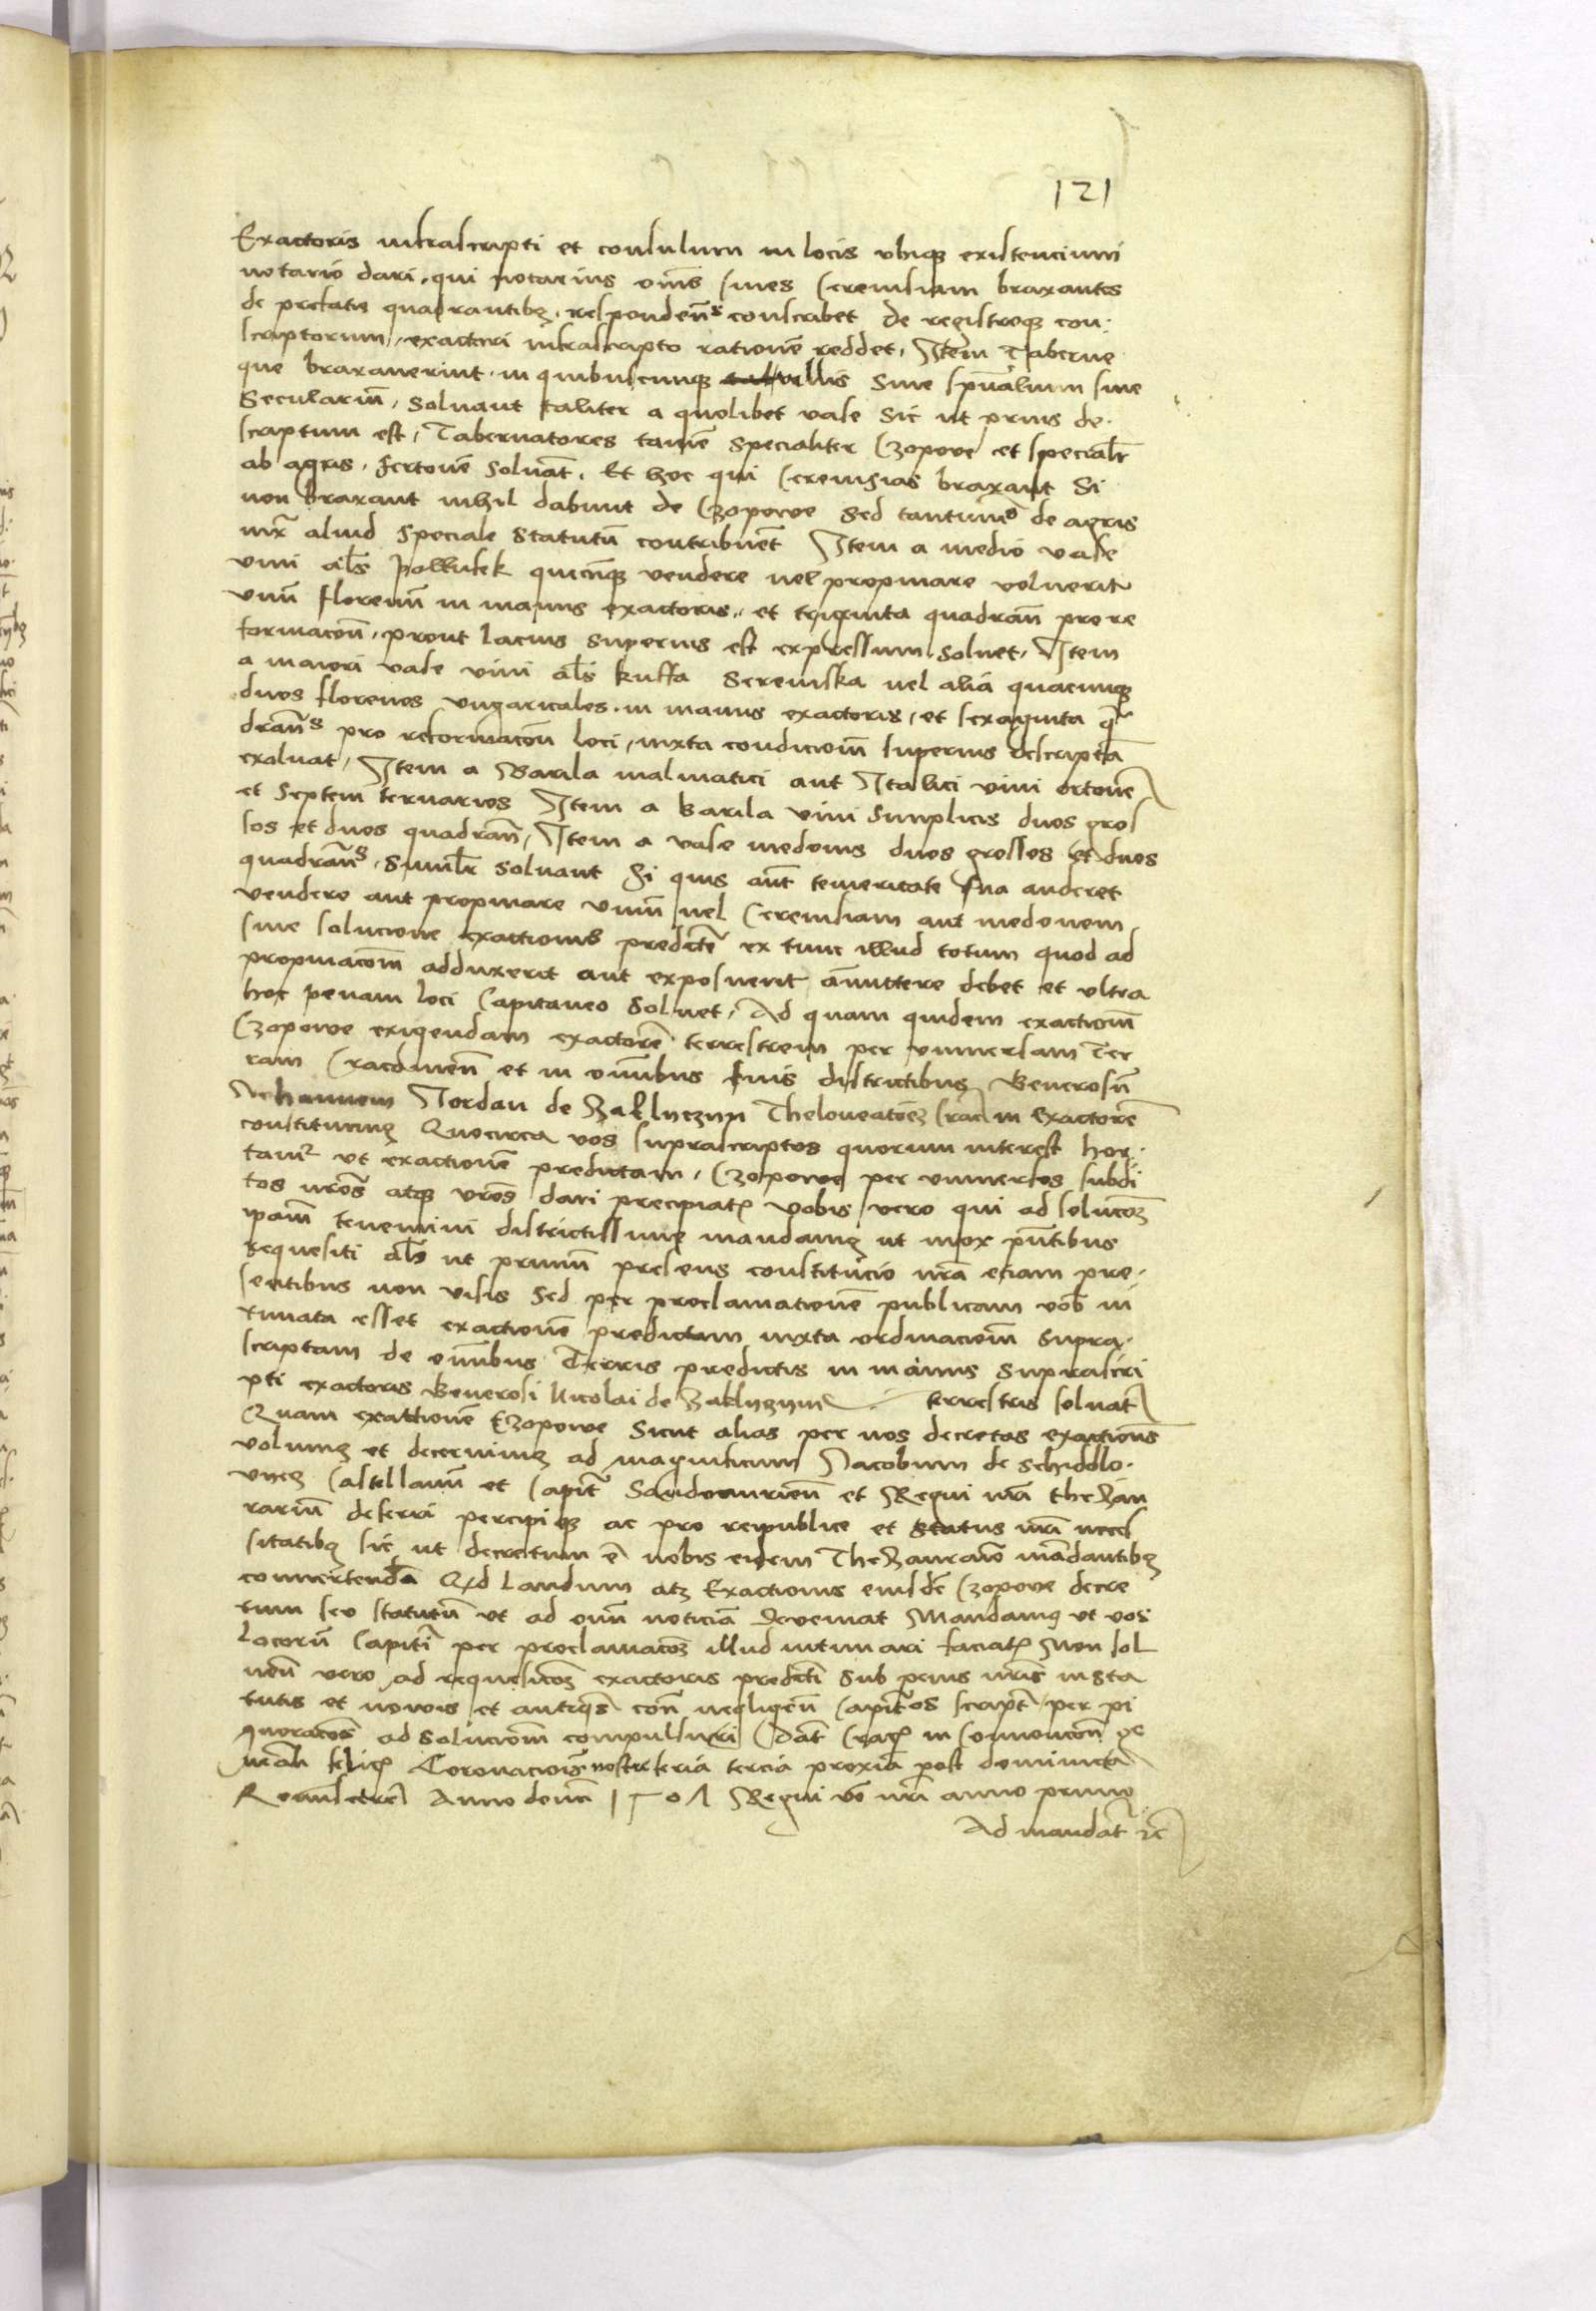 121
Exactoris infrascripti et consulum in locis ubiqz existencium
notario dari, qui notarius oms sines Cerevisiam braxantes
de prefatis quadrantibz, respondens conscribet de registroqz con:
scriptorum, exactori infrascripto rationem reddet, Item Taberne
que braxaverint in quibuscunqz villis sive spualium sive
Secularium, Solvant taliter a quolibet vase Sic ut prius de.
scriptum est, Tabernatores tamen Specialiter Czopove et specialr
ab agris, fertonem Solvant, Et hoc qui Cerevisias braxant Si
non braxant nihil dabunt de Czopowe Sed tantumo de agris
iuxta aliud Speciale Statutum contribuent Item a medio vase
vini als Pollufek quicunqz vendere vel propinare voluerit
unum florenum in manus exactoris, et triginta quadran pro re
formacon, prout lacius superius est expressum, solvet, Item
a maiori vase vini als kuffa Seremska vel alia quacunqz
duos florenos ungaricales, in manus exactoris, et sexaginta q
drans pro reformacon loci, iuxta condiciom superius descriptam
exolvat, Item a Barila malmatici aut Italici vini ortonem
et Septem ternarios Item a barila vini Simplicis duos gros
sos et duos quadran, Item a vase medonis duos grossos et duos
quadrans, Similr Solvant Si quis aut temeritate sua auderet
vendere aut propinare vinum vel Cerevisiam aut medonem
sine solucione exactionis predicte ex tunc illud totum quod ad
propinacom adduxerit aut exposuerit amittere debet et ultra
hoc penam loci Capitaneo Solvet, Ad quam quidem exactiom
Czopowe exigendam exactorem terrestrem per universam Ter
ram Cracovien et in omnibus suis districtibus Generosum
Iordan de Zaklyczyn Crac in Exactorem
constituimus Quocirca vos suprascriptos quorum interest hor.
tamur ut exactionem predictam, Czopowe per universos subdi
tos nros atqz vros dari precipiatis Vobis vero qui ad solucoem
ipam tenemini districtissime mandamus ut mox pntibus
requisiti als ut primum presens constitucio nra eciam pre.
sentibus non visis Sed per proclamationem publicam vob in
timata esset exactionem predictam iuxta ordinaciom supra.
scriptam de omnibus Terris predictis in manus suprascri
pti exactoris Generosi Nicolai de Zaklyczyn terrestris solvatis
Quam exactionem Czopowe Sicut alias per nos decretas exactions
volumus et decernimus ad magnificum Iacobum de Schidlo.
vyecz Castellanum et Capit Sandomirien et Regni nri thezau
rarium deferri percipiqz ac pro reipublice et Status nri neces
sitatibz sic ut decretum e nobis eidem Thezaurario mandantibz
convertendam Qd Laudum atqz Exactionis eiusdem Czopowe decre
tum seu statutum ut ad omnium noticiam deveniat Mandamus ut vos
Locorum Capitei per proclamacoem illud intimari faciatis Non sol
ven vero ad requisicoem exactoris predicti sub penis nris in sta
tutis et novis et antiqs con negligen Capitos script per pi
gnoracoes ad Soluciom compulsuri Dat Crac in Convencon ge
neral felicis Coronacionis nostre feria tercia proxia post dominica
Reminiscere Anno domi 1507 Regni vo nri anno primo
Ad mandat rc